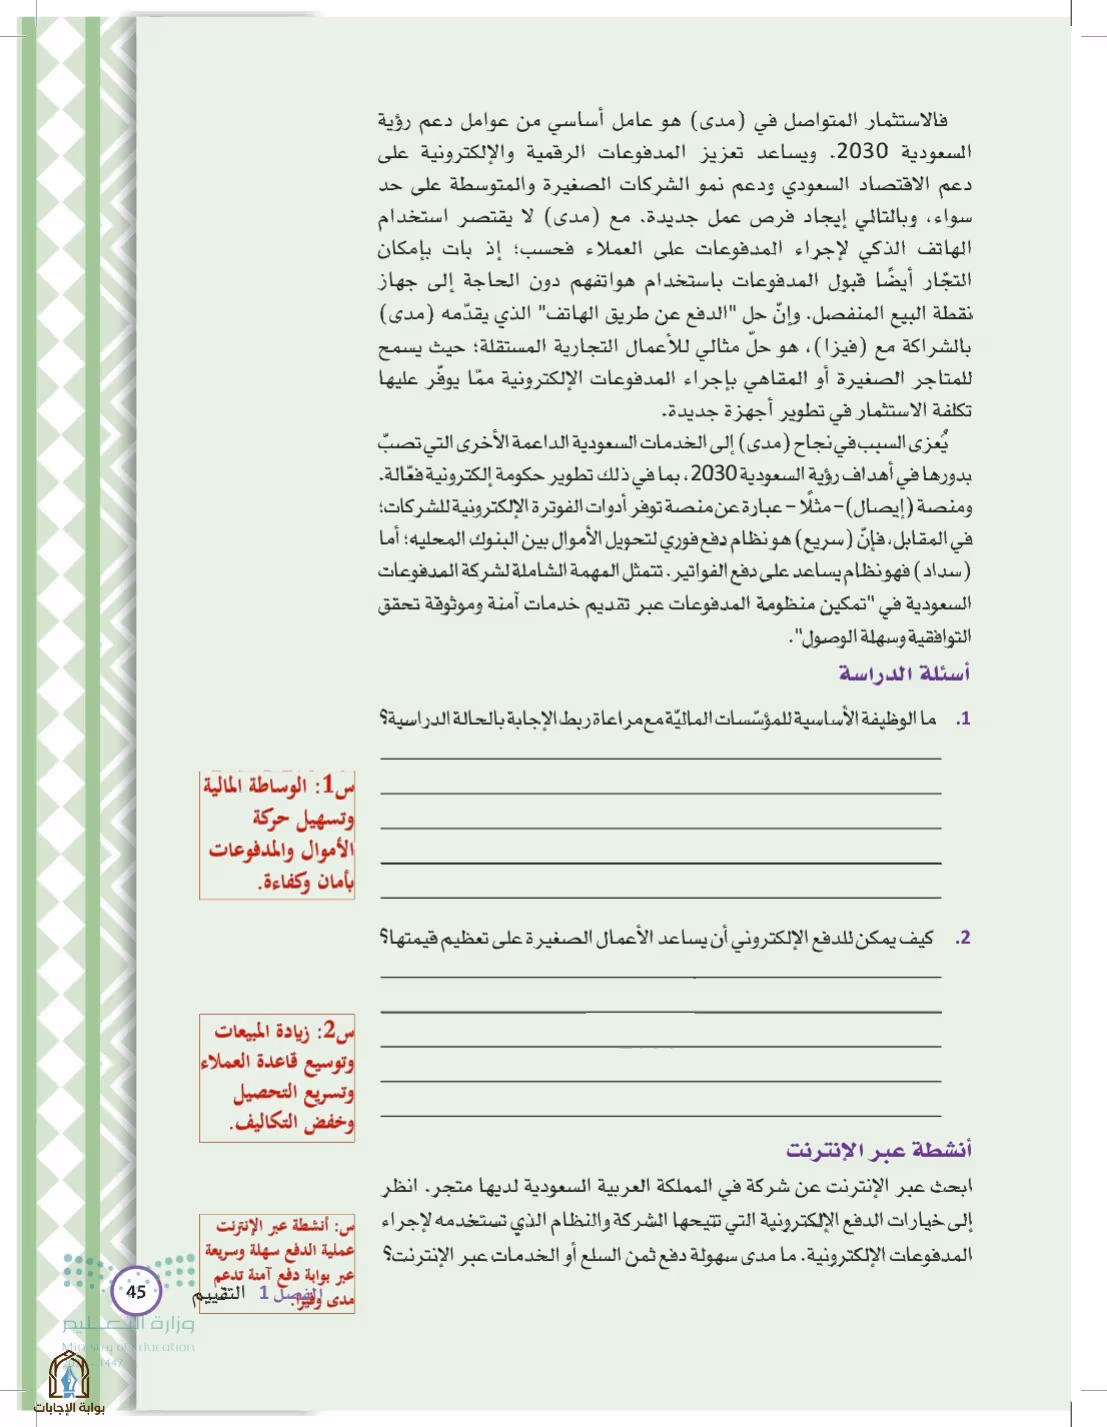 فالاستثمار المتواصل في (مدى) هو عامل أساسي من عوامل دعم رؤية
السعودية 2030. ويساعد تعزيز المدفوعات الرقمية والإلكترونية على
دعم الاقتصاد السعودي ودعم نمو الشركات الصغيرة والمتوسطة على حد
سواء، وبالتالي إيجاد فرص عمل جديدة. مع (مدى) لا يقتصر استخدام
الهاتف الذكي لإجراء المدفوعات على العملاء فحسب؛ إذ بات بإمكان
التجّار أيضًا قبول المدفوعات باستخدام هواتفهم دون الحاجة إلى جهاز
نقطة البيع المنفصل. وإنّ حل "الدفع عن طريق الهاتف" الذي يقدّمه (مدى)
بالشراكة مع (فيزا)، هو حلّ مثالي للأعمال التجارية المستقلة؛ حيث يسمح
للمتاجر الصغيرة أو المقاهي بإجراء المدفوعات الإلكترونية ممّا يوفّر عليها
تكلفة الاستثمار في تطوير أجهزة جديدة.
يُعزى السبب في نجاح (مدى) إلى الخدمات السعودية الداعمة الأخرى التي تصبّ
بدورها في أهداف رؤية السعودية 2030، بما في ذلك تطوير حكومة إلكترونية فعّالة.
ومنصة (إيصال)- مثلًا - عبارة عن منصة توفر أدوات الفوترة الإلكترونية للشركات؛
في المقابل، فإنّ (سريع) هو نظام دفع فوري لتحويل الأموال بين البنوك المحليه؛ أما
(سداد) فهو نظام يساعد على دفع الفواتير. تتمثل المهمة الشاملة لشركة المدفوعات
السعودية في "تمكين منظومة المدفوعات عبر تقديم خدمات آمنة وموثوقة تحقق
التوافقية وسهلة الوصول".
أسئلة الدراسة
1. ما الوظيفة الأساسية للمؤسّسات الماليّة مع مراعاة ربط الإجابة بالحالة الدراسية؟
س1: الوساطة المالية
وتسهيل حركة
الأموال والمدفوعات
بأمان وكفاءة.
2. كيف يمكن للدفع الإلكتروني أن يساعد الأعمال الصغيرة على تعظيم قيمتها؟
س2: زيادة المبيعات
وتوسيع قاعدة العملاء
وتسريع التحصيل
وخفض التكاليف.
أنشطة عبر الإنترنت
ابحث عبر الإنترنت عن شركة في المملكة العربية السعودية لديها متجر. انظر
إلى خيارات الدفع الإلكترونية التي تتيحها الشركة والنظام الذي تستخدمه لإجراء
المدفوعات الإلكترونية. ما مدى سهولة دفع ثمن السلع أو الخدمات عبر الإنترنت؟
س: أنشطة عبر الإنترنت
عملية الدفع سهلة وسريعة
عبر بوابة دفع آمنة تدعم
مدى وفيزا.
الفصل 1 التقييم
45
وزارة التعليم
Ministry of Education
1447
بوابة الإجابات